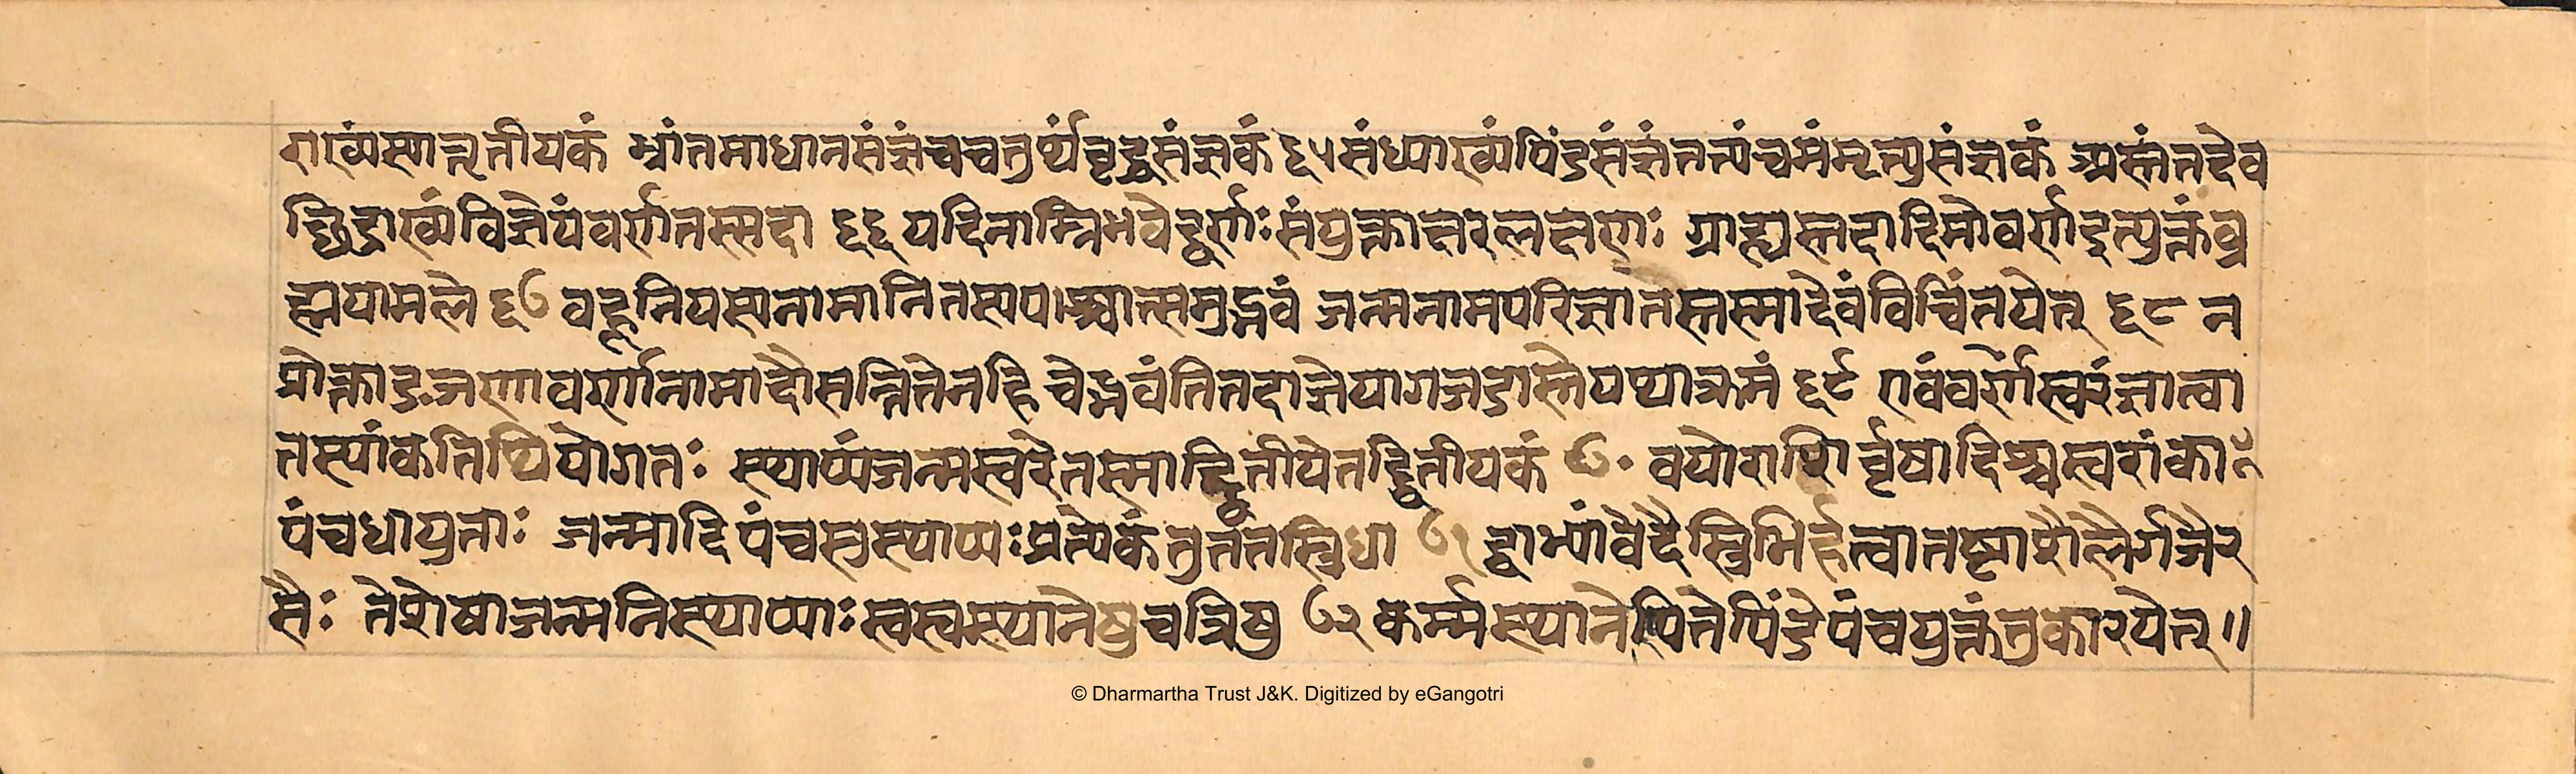 राख्यंस्यात्तृतीयकं भ्रांतमाधानसंज्ञंचचतुर्थंवृद्धसंज्ञकं ६५ संध्याख्यंपिंडसंज्ञंतत्पंचमंमृत्युसंज्ञकं अस्तंतदेव
च्छिद्राख्यंविज्ञेयंवर्णतस्सदा ६६ यदिनाम्निभवेद्वर्णःसंयुक्ताक्षरलक्षणः ग्राह्यस्तदादिमोवर्णइत्युक्तंब्र
ह्मयामले ६७ बहूनियस्यनामानितस्यपश्चात्समुद्भवं जन्मनामपरिज्ञातंस्तस्मादेवंविचिंतयेत् ६८ न
प्रोक्ताङञणावर्णानामादौसन्तितेनहि चेद्भवंतितदाज्ञेयागजडास्तेयथाक्रमं ६९ एवंवर्णस्वरंज्ञात्वा
तस्यांकतिथियोगतः स्थाप्यंजन्मस्वरेतस्माद्द्वितीयेतद्द्वितीयकं ७० वयोराशिर्वृषादिश्चस्वरांकाः
पंचधायुताः जन्मादिपंचस्तुस्थाप्यःप्रत्येकंतुततस्त्रिधा ७१ द्वाभ्यांवेदैस्त्रिभिर्हत्वातष्टाशैलैर्गजैर
सैः तेशेषाजन्मनिस्थाप्याःस्वस्वस्थानेषुचत्रिषु ७२ कर्मस्थानेपितेपिंडेपंचयुक्तंतुकारयेत् ॥
© Dharmartha Trust J&K. Digitized by eGangotri